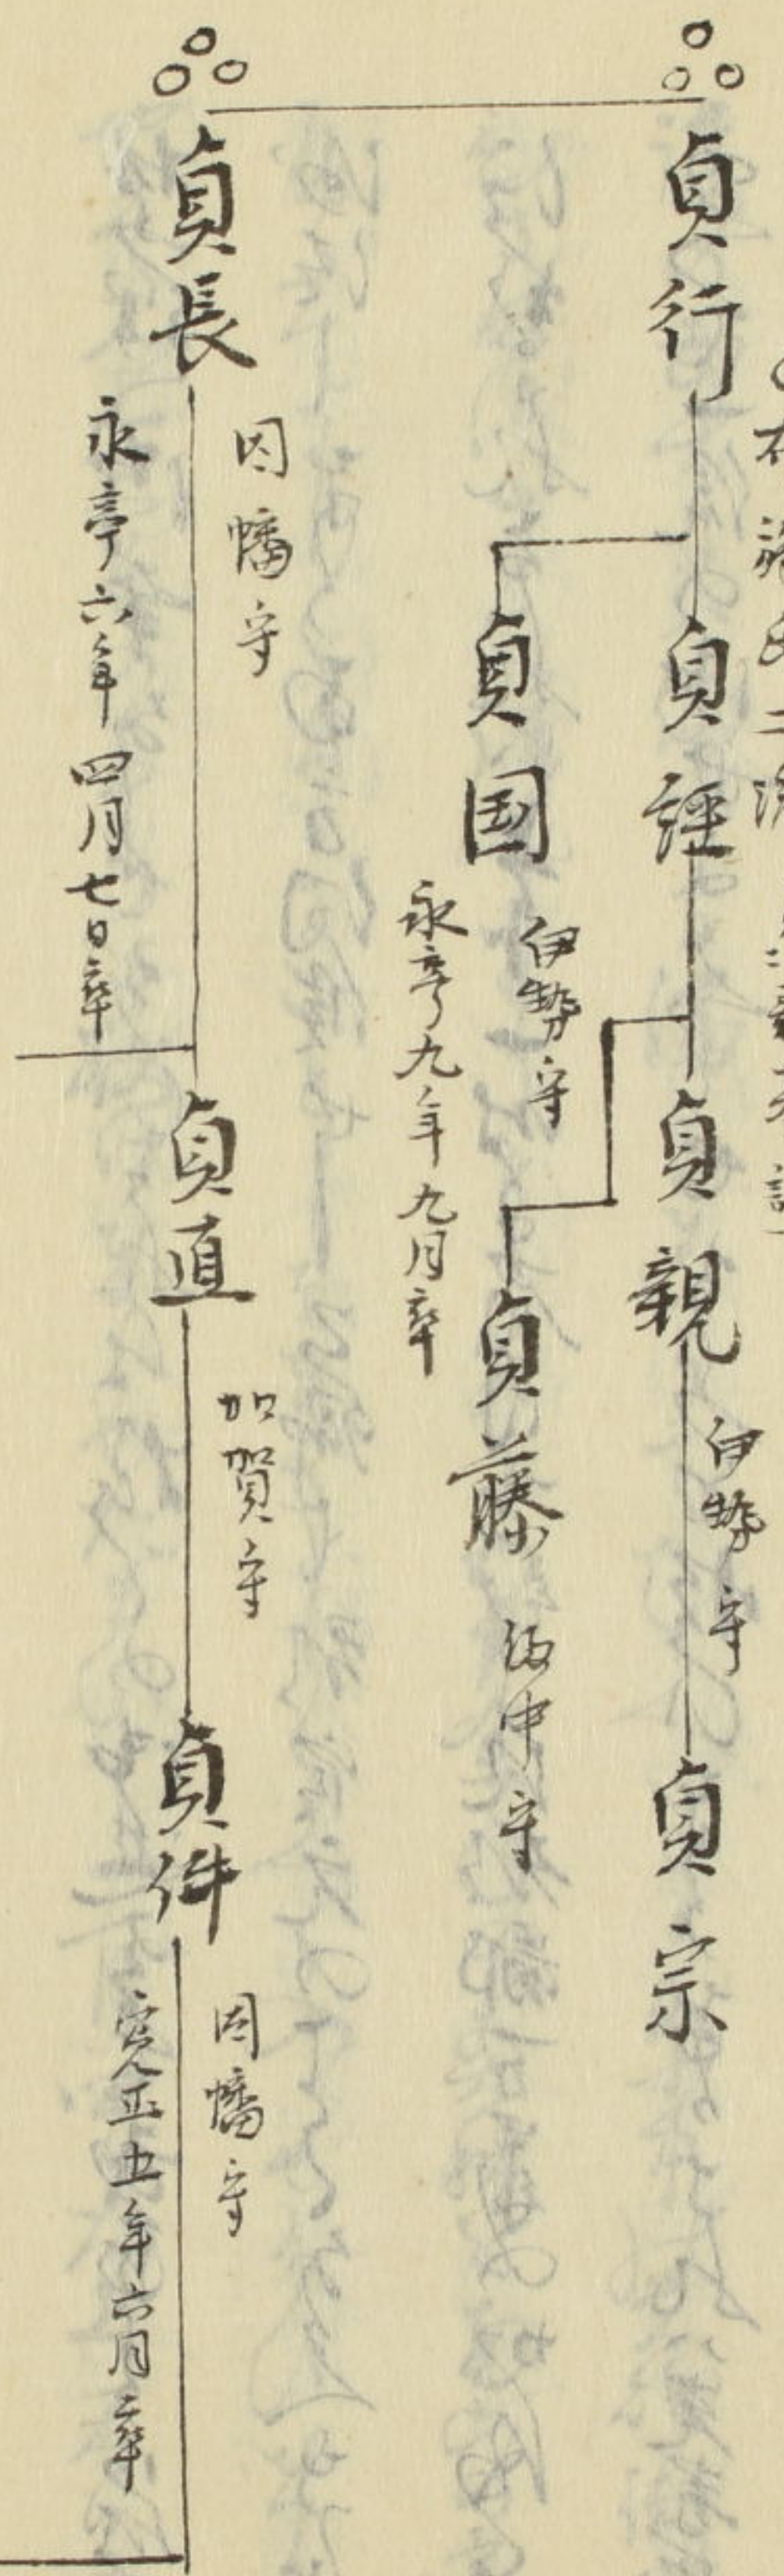 貞行
貞経
貞親
伊勢守
貞宗
貞国
伊勢守
永享九年九月卒
貞藤
備中守
貞長
因幡守
永享六年四月七日卒
貞直
加賀守
貞仲
因幡守
寛正五年六月卒